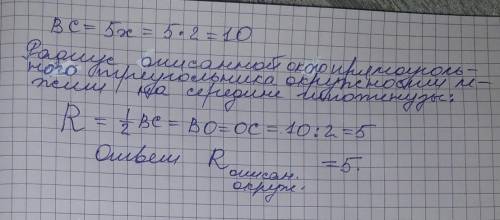 BC = 5x = 5·2 = 10
Радиус, описанной около прямоуголь-
ного треугольника окружности ле-
жит на середине гипотенузы:
R = 1/2 BC = BO = OC = 10:2 = 5
Ответ R описан. окруж. = 5.